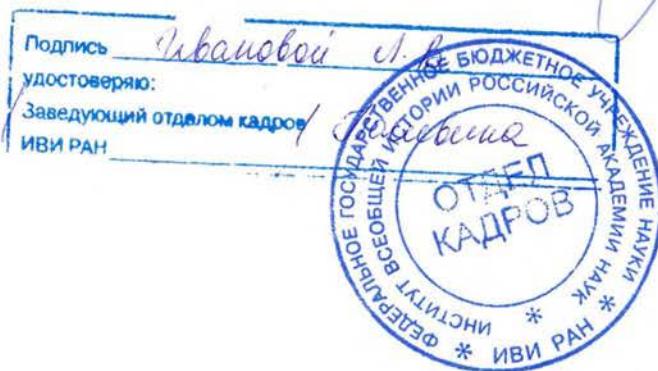 Подпись Ивановой
удостоверяю:
Заведующий отделом кадров
ИВИ РАН
ФЕДЕРАЛЬНОЕ ГОСУДАРСТВЕННОЕ БЮДЖЕТНОЕ УЧРЕЖДЕНИЕ НАУКИ
ИНСТИТУТ ВСЕОБЩЕЙ ИСТОРИИ РОССИЙСКОЙ АКАДЕМИИ НАУК
* ИВИ РАН *
*
ОТДЕЛ
КАДРОВ